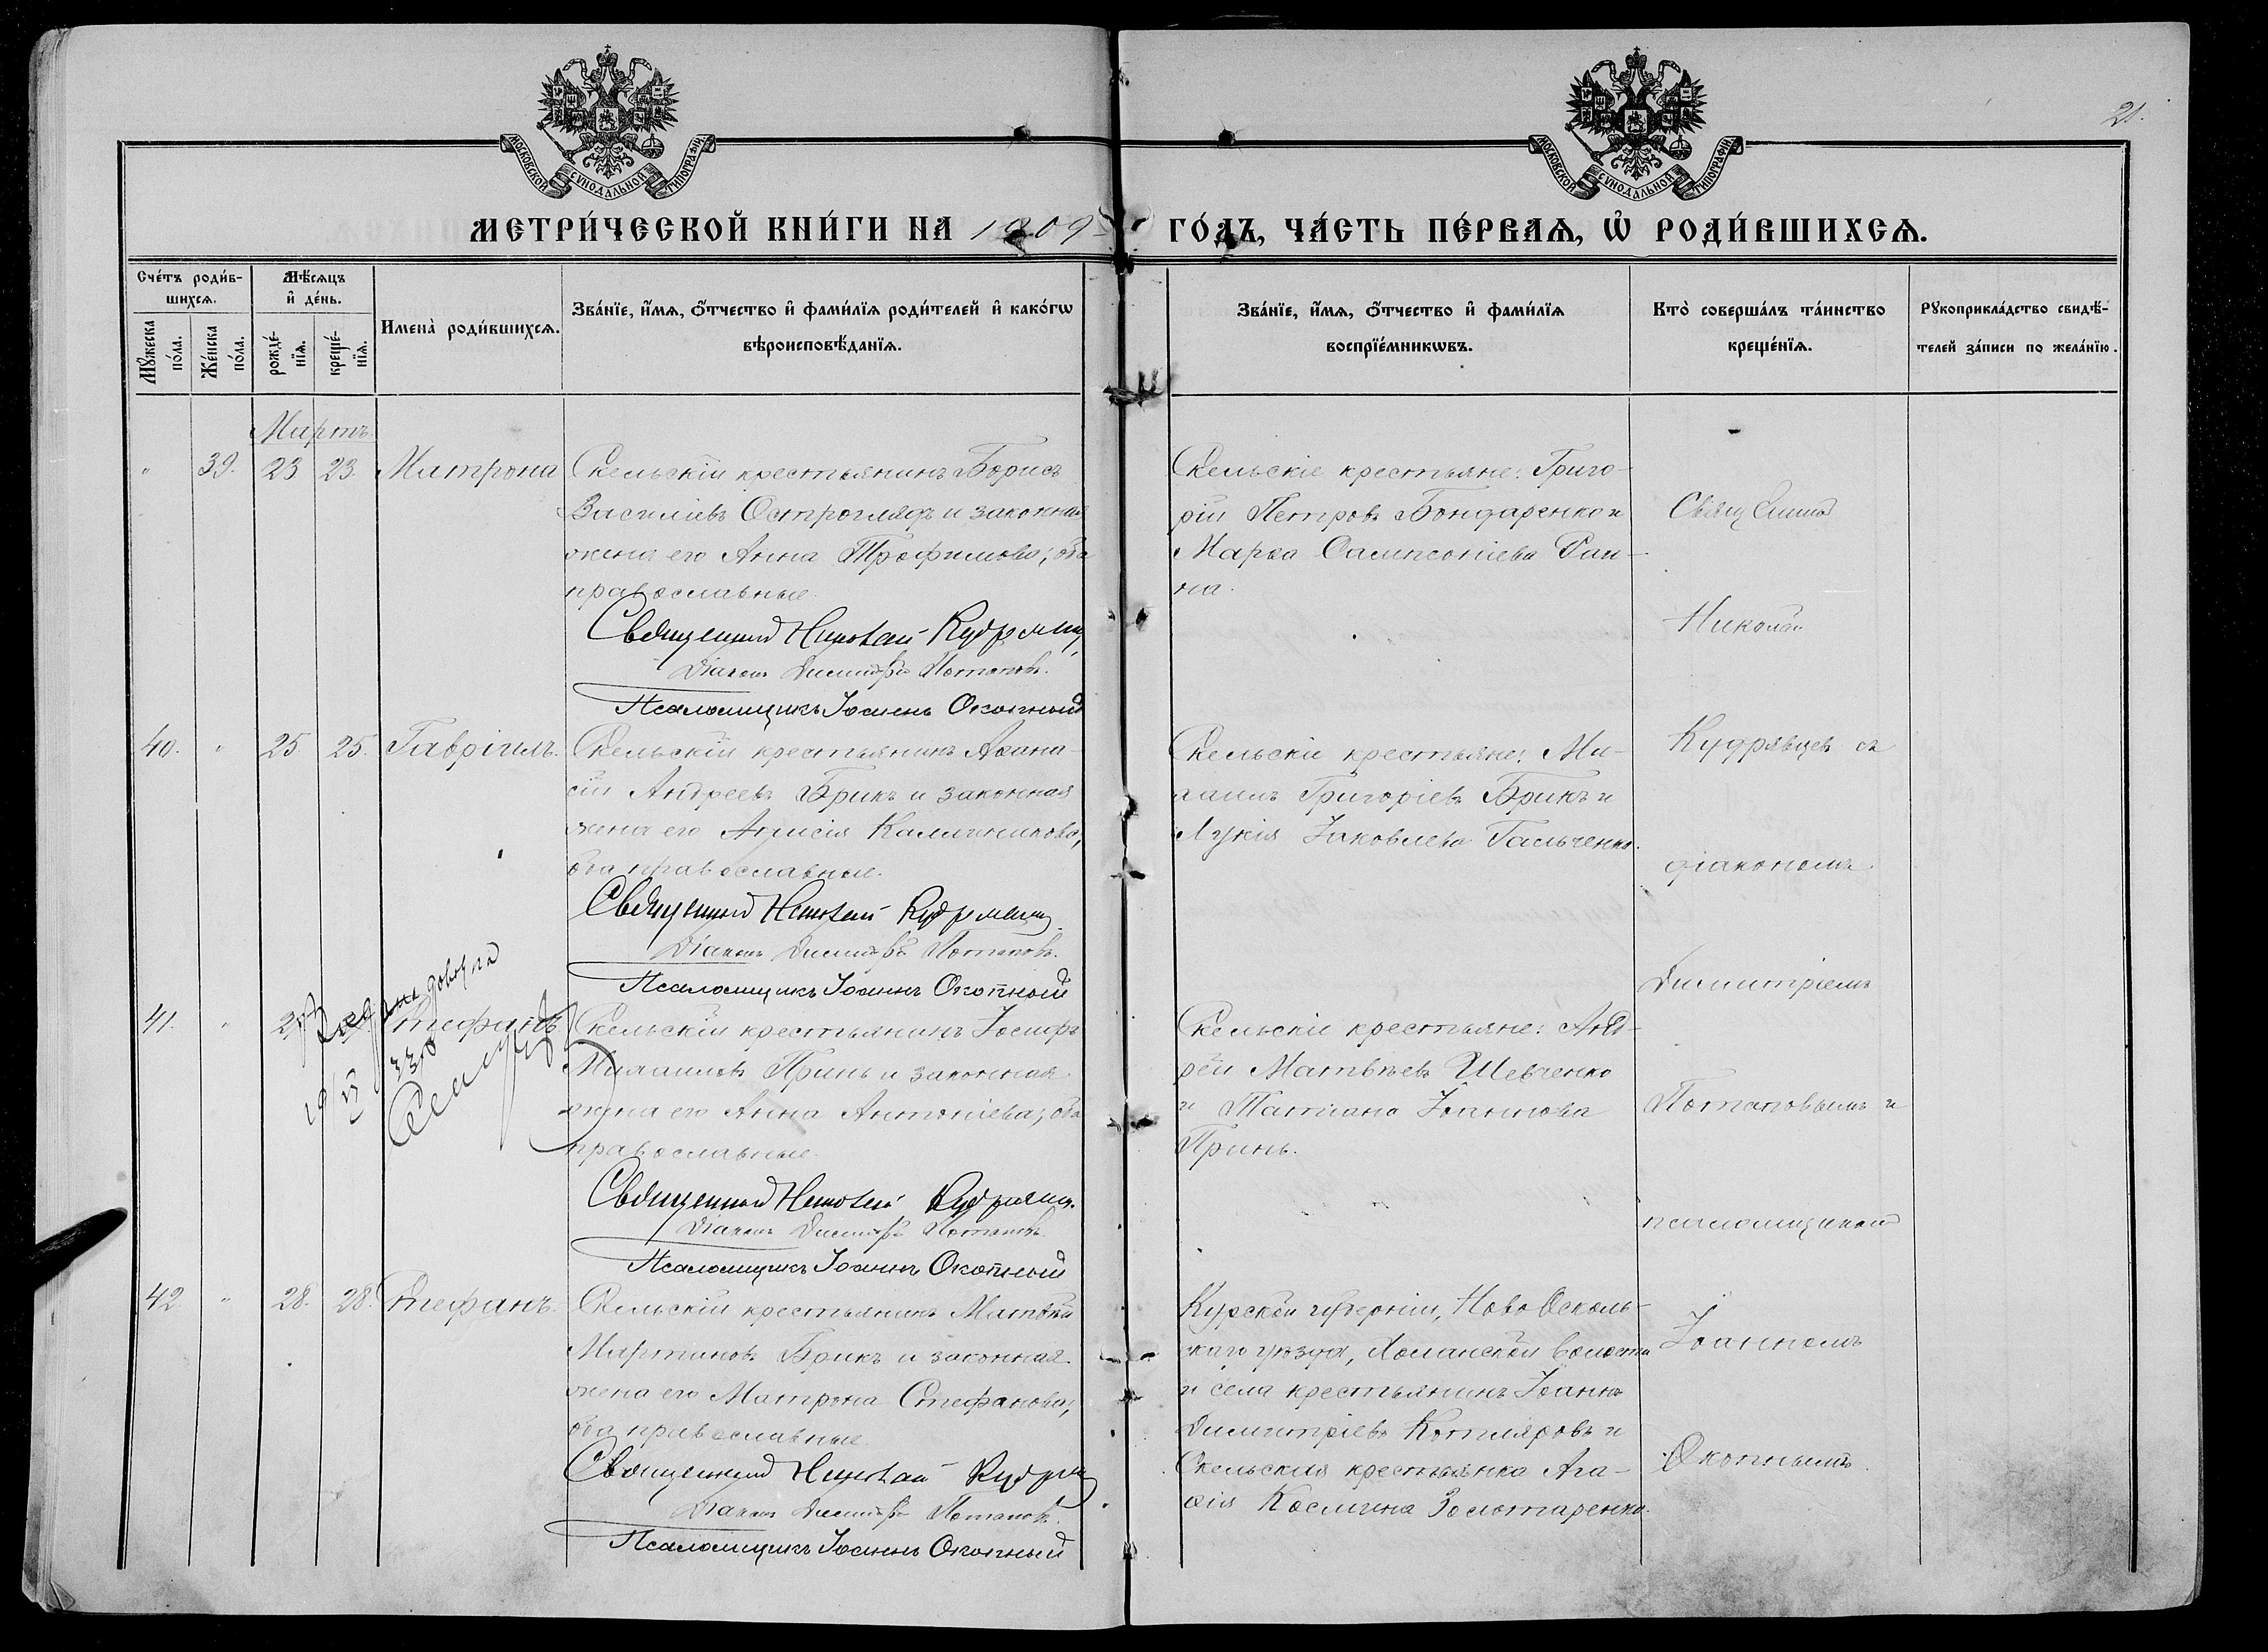 21.
МОСКОВСКОЙ СѴНОДАЛЬНОЙ ТИПОГРАФІИ
МОСКОВСКОЙ СѴНОДАЛЬНОЙ ТИПОГРАФІИ
МЕТРИ́ЧЕСКОЙ КНИ́ГИ НА 1909
ГО́ДЪ, ЧА́СТЬ ПЕ́РВАѦ, Ѡ҆ РОДИ́ВШИХСѦ.
Сче́тъ роди́в-
шихсѧ.
Мꙋ́жеска по́ла.
Же́нска по́ла.
Мѣ́сѧцъ
и҆ де́нь.
рожде́-
нїѧ.
креще́-
нїѧ.
Имена̀ роди́вшихсѧ.
Зва́нїе, и҆́мѧ, ѻ҆́тчество и҆ фами́лїѧ роди́телей и҆ како́гѡ
вѣроисповѣ́данїѧ.
Зва́нїе, и҆́мѧ, ѻ҆́тчество и҆ фами́лїѧ
воспрїе́мникѡвъ.
Кто̀ соверша́лъ та́инство
креще́нїѧ.
Рꙋкоприкла́дство свидѣ́-
телей за́писи по жела́нїю.
Мартъ
" 39. 23 23. Матрона
Скельскій крестьянинъ Борисъ
Василіевъ Остроглядъ и законная
жена его Анна Трофимова, оба
православные.
Священникъ Николай Кудрявцев
Діаконъ Димитрій Потаповъ.
Псаломщикъ Іоаннъ Окопный
Скельскіе крестьяне: Григо-
рій Петровъ Бондаренко и
Марѳа Сампсоніева
на.
40. " 25 25. Гавріилъ.
Скельскій крестьянинъ Аѳана-
сій Андреевъ Брикъ и законная
жена его Калинникова,
оба православные.
Священникъ Николай Кудрявцев
Діаконъ Димитрій Потаповъ.
Псаломщикъ Іоаннъ Окопный
Скельскіе крестьяне: Ми-
хаилъ Григоріевъ Брикъ и
Лукія Іаковлева Гальченко.
41. " Стефанъ
Скельскій крестьянинъ Іосифъ
Михаиловъ Принь и законная
жена его Анна Антоніева, оба
православные.
Священникъ Николай Кудрявцев.
Діаконъ Димитрій Потаповъ
Псаломщикъ Іоаннъ Окопный
Скельскіе крестьяне: Анд-
рей Матвѣевъ Шевченко
и Татіана Іоаннова
Принь.
42. " 28. 28. Стефанъ.
Скельскій крестьянинъ Матѳей
Мартиновъ Брикъ и законная
жена его Матрона Стефанова,
оба православные.
Священникъ Николай Кудрявцев
Діаконъ Димитрій Потаповъ.
Псаломщикъ Іоаннъ Окопный
Курской губерніи, НовоОсколь-
скаго уѣзда, Холанской волости
и села крестьянинъ Іоаннъ
Димитріевъ Котляровъ и
Скельская крестьянка Ага-
ѳія Космина Золотаренко.
Священникъ
Николай
Кудрявцевъ съ
діакономъ
Димитріемъ
Потаповымъ и
псаломщикомъ
Іоанномъ
Окопнымъ.